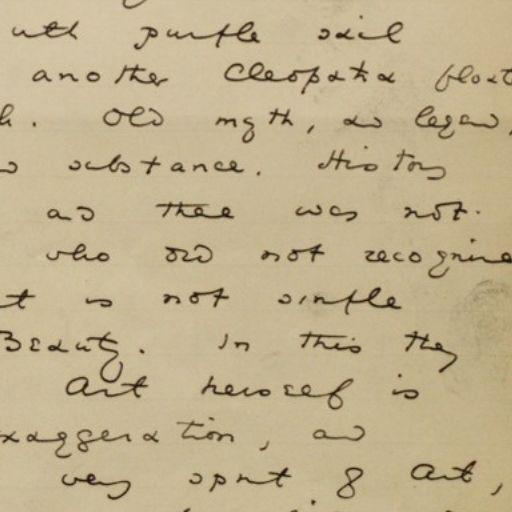 with purple sail
another Cleopatra float
h. Old myth, and legend,
substance. History
and there was not.
who did not recognise
t is not simple
Beauty. In this they
Art herself is
xaggeration, and
very spirit of Art,